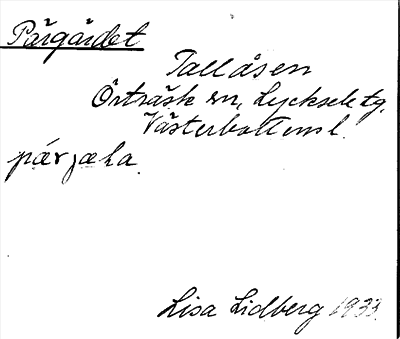 Pärgärdet
Tallåsen
Örträsk sn, Lycksele tg.
Västerbottens l.
pær, jæla
Lisa Lidberg 1933.